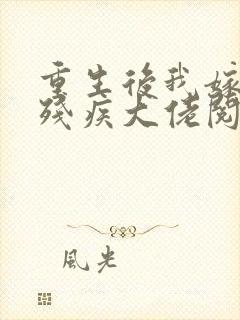 重生後我嫁
殘疾大佬閱
風光